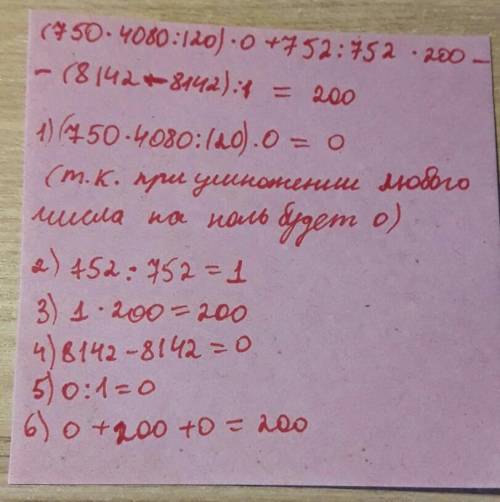 (750·4080:120)·0+752:752·200-
-(8142-8142):1 = 200
1)(750·4080:120)·0 = 0
(т.к. при умножении любого
числа на ноль будет 0)
2) 752:752=1
3) 1·200=200
4) 8142-8142=0
5) 0:1=0
6) 0+200+0=200